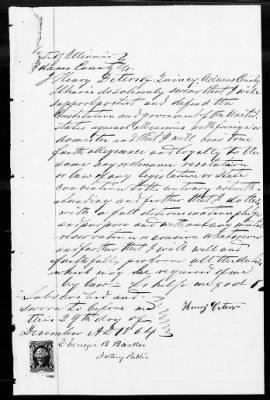 State of Illinois }
Adams County } ss.
I Henry Peters of Quincy, Adams County
Illinois do solemnly swear that I will
support protect and defend the
Constitution and government of the United
States against all enemies whether foreign or
domestic and that I will bear true
faith allegiance and loyalty to the
same any ordinance resolution
or law of any legislature or state
convention to the contrary notwith
standing and further that I do this
with a full determination pledge
and purpose and without any mental
reservation or evasion whatsoever
and further that I will well and
faithfully perform all the duties
which may be required of me
by law So help me god
Subscribed and
Sworn to before me
this 29th day of
December AD 1864
Henry Peters
Ebenezer B Barker
Notary Public